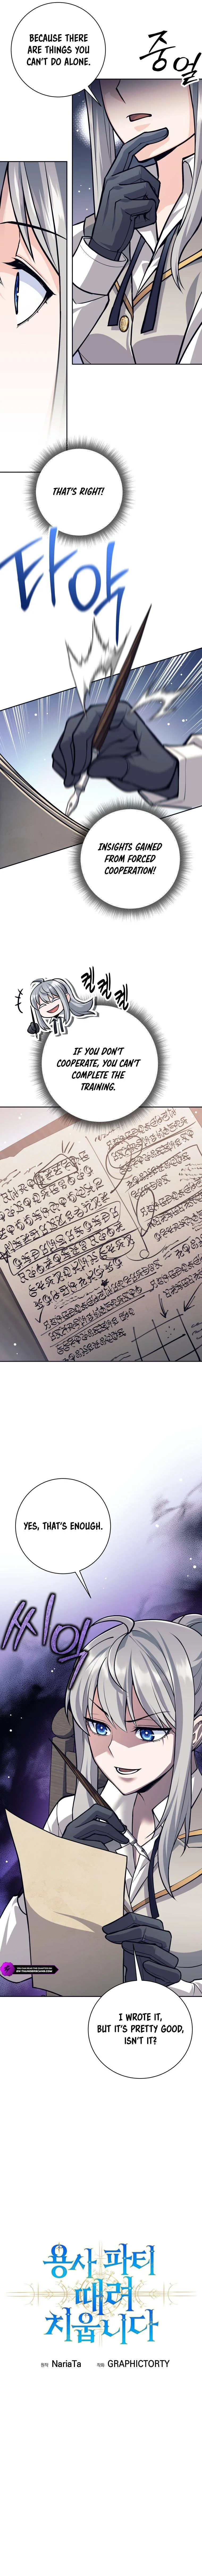 BECAUSE THERE
ARE THINGS YOU
CAN'T DO ALONE.
중얼
THAT'S RIGHT!
타악
INSIGHTS GAINED
FROM FORCED
COOPERATION!
킥킥킥
IF YOU DON'T
COOPERATE, YOU CAN'T
COMPLETE THE
TRAINING.
YES, THAT'S ENOUGH.
씨익
I WROTE IT,
BUT IT'S PRETTY GOOD,
ISN'T IT?
용사 파티
때려
치웁니다
NariaTa
GRAPHICTORTY